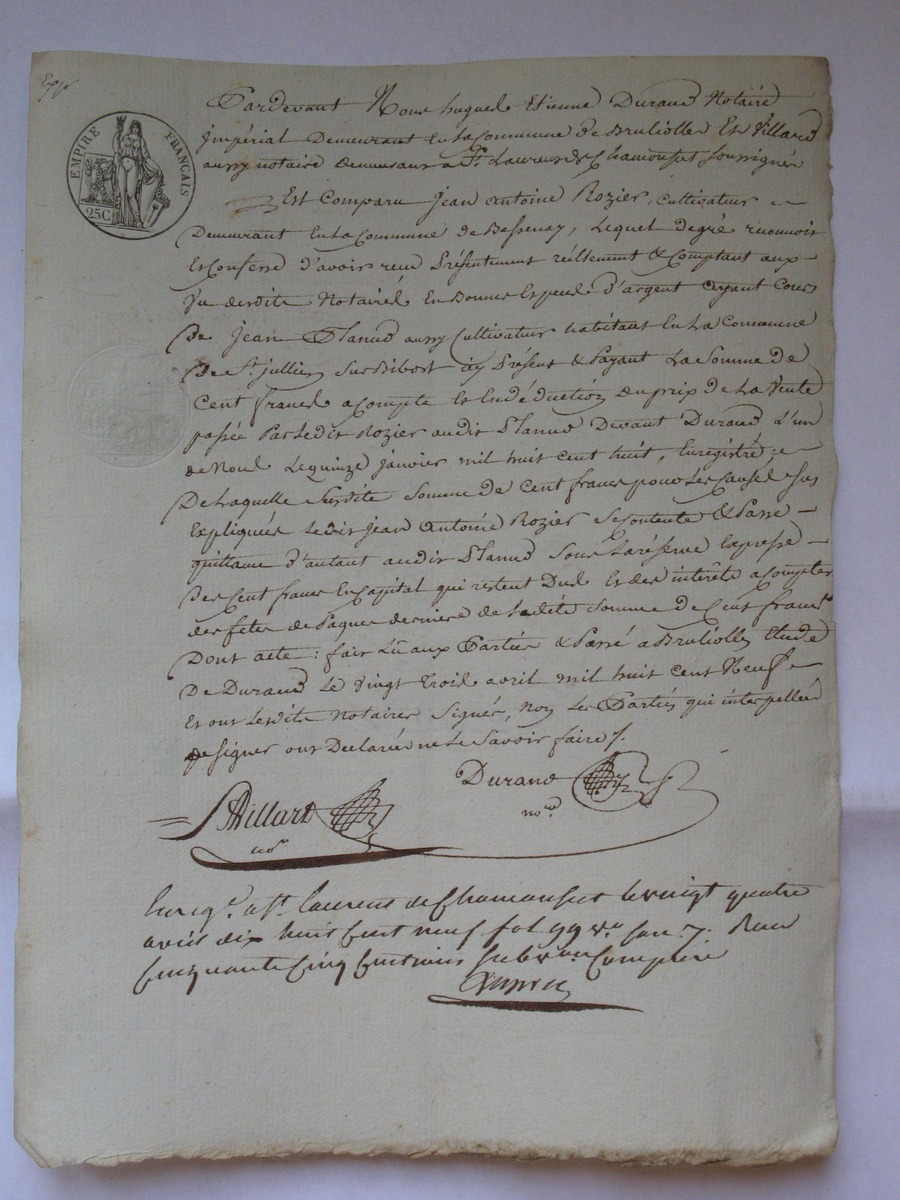 Expé
EMPIRE FRANÇAIS
25C.
Pardevant Nous hugues Etienne Durand Notaire
jmpérial Demeurant En La Commune de Brulliolles Et Villard
aussy notaire demeurant a St. Laurent de Chamousset soussignés
Est Comparu jean antoine Rozier, Cultivateur
Demeurant En La Commune de Bessenay, Lequel de gré reconnoit
Et Confesse d'avoir reçu Présentement réellement & Comptant aux
Vue desdits Notaires En Bonnes Especes d'argent ayant Cours
De jean aussy Cultivateur habitant En La Commune
De St. jullien Sur Bibost icy Présent & Payant La Somme de
Cent francs acompte Et En déduction du prix de La Vente
passée Par Ledit Rozier audit Devant Durand L'un
de Nous Le quinze janvier mil huit cent huit, Enregistré
De Laquelle Susdite Somme de Cent francs pour Les Causes Sus
Expliquées Ledit jean antoine Rozier Se Contente & Passe
quittance d'autant audit Sous La réserve Expresse
Des Cent francs En Capital qui restent Dus Et des intérêts a Compter
des fêtes de Paques dernière de Ladite Somme de Cent francs
Dont acte : fait Lu aux Parties & Passé a Brulliolles Etude
De Durand Le Vingt Trois avril mil huit cent Neuf
Et ont Lesdits Notaires Signés, Non Les Parties qui interpellées
de Signer ont Declarées ne Le Savoir faire /.
Durand
nore
Villard
nore
Enregé. a St. laurent de Chamousset le vingt quatre
avril dix huit Cent neuf fol 99 vo. Case 7. Reçu
Cinquante Cinq Centimes Subvon Comprise